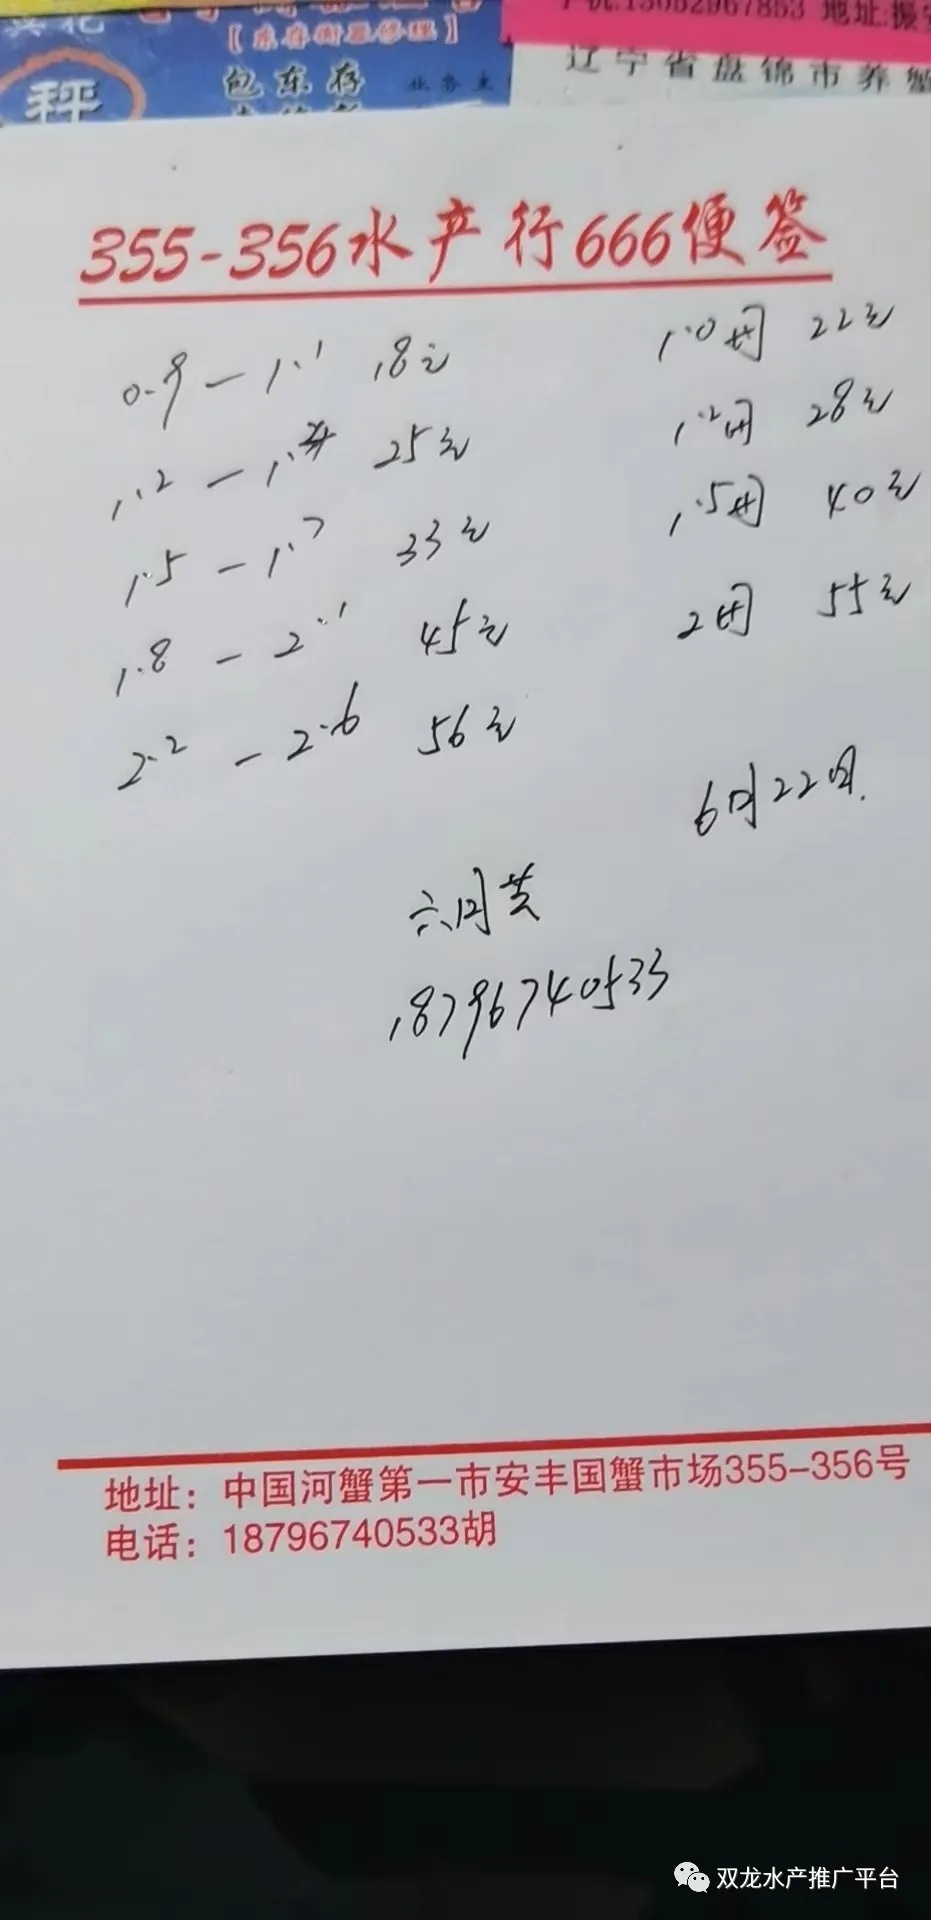 [东存衡器修理]
包东存
业务主
手机:13052967853 地址:振
辽宁省盘锦市养蟹
秤
355-356水产行666便签
0.9-1.1 18元
1.0母 22元
1.2-1.4 25元
1.2母 28元
1.5-1.7 33元
1.5母 40元
1.8-2.1 45元
2母 55元
2.2-2.6 56元
6月22日.
六月黄
18796740533
地址：中国河蟹第一市安丰国蟹市场355-356号
电话：18796740533胡
双龙水产推广平台